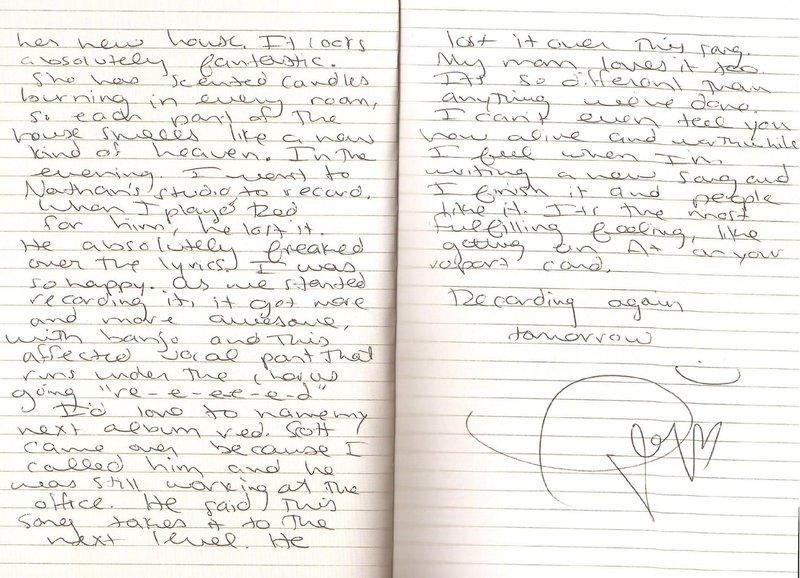 her new house. It looks
absolutely fantastic.
She has scented candles
burning in every room,
so each part of the
house smells like a new
kind of heaven. In the
evening. I went to
Nathan's studio to record.
When I played Red
for him, he lost it.
He absolutely freaked
over the lyrics. I was
so happy. As we started
recording it, it got more
and more awesome,
with banjo and this
affected vocal part that
runs under the chorus
going "re-e-e-e-e-d"
I'd love to name my
next album red. Scott
came over because I
called him and he
was still working at the
office. He said this
song takes it to the
next level. He
lost it over this song.
My mom loves it too.
It's so different than
anything we've done.
I can't even tell you
how alive and worthwhile
I feel when I'm
writing a new song and
I finish it and people
like it. It's the most
fulfilling feeling, like
getting an A+ on your
report card.
Recording again
tomorrow